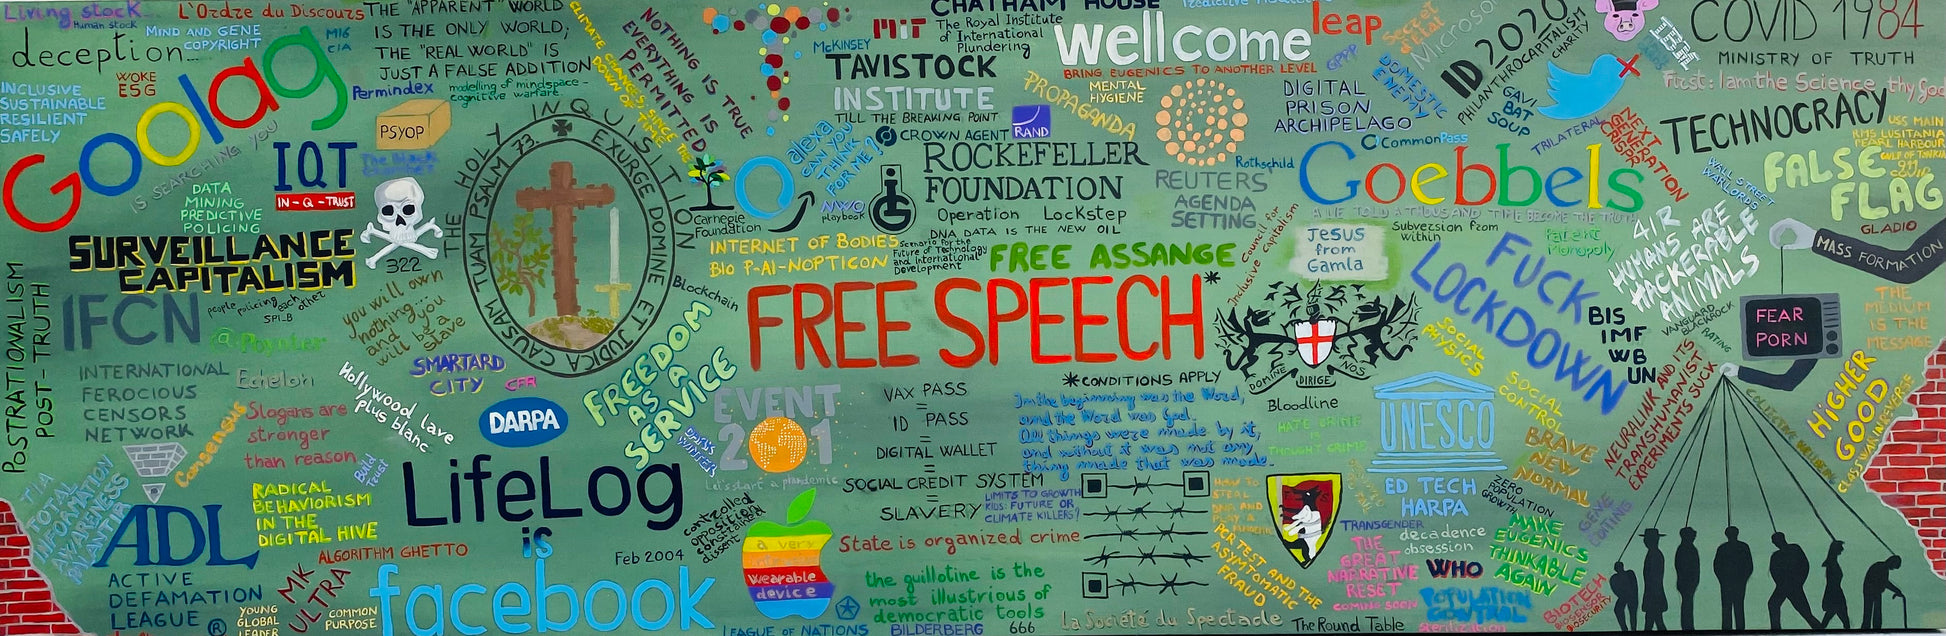 Living stock
Human stock
deception...
MIND AND GENE
COPYRIGHT
L'Ordre du Discours
MI6
CIA
WOKE
ESG
INCLUSIVE
SUSTAINABLE
RESILIENT
SAFELY
Goolag
IS SEARCHING YOU
THE "APPARENT" WORLD
IS THE ONLY WORLD;
THE "REAL WORLD" IS
JUST A FALSE ADDITION
modelling of mindspace -
cognitive warfare
Permindex
PSYOP
IQT
IN-Q-TRUST
DATA
MINING
PREDICTIVE
POLICING
SURVEILLANCE
CAPITALISM
322
THE HOLY INQUISITION
EXURGE DOMINE ET JUDICA CAUSAM TUAM PSALM 73.
CLIMATE CHANGES, SINCE THE
DOWN OF TIME
NOTHING IS TRUE
EVERYTHING IS
PERMITTED
McKINSEY
MIT
CHATHAM HOUSE
The Royal Institute
of International
Plundering
TAVISTOCK
INSTITUTE
TILL THE BREAKING POINT
wellcome
leap
BRING EUGENICS TO ANOTHER LEVEL
MENTAL
HYGIENE
PROPAGANDA
GPPP
Secret
détat
Microsoft
DOMESTIC
ENEMY
DIGITAL
PRISON
ARCHIPELAGO
ID 2020
PHILANTHROCAPITALISM
CHARITY
GAVI
BAT
SOUP
COVID 1984
MINISTRY OF TRUTH
First: I am the Science
thy God
TECHNOCRACY
USS MAIN
RMS LUSITANIA
PEARL HARBOUR
GULF OF TONKIN
911
COVID
FALSE
FLAG
GLADIO
alexa
CAN YOU
THINK
FOR ME?
CROWN AGENT
RAND
ROCKEFELLER
FOUNDATION
Operation Lockstep
DNA DATA IS THE NEW OIL
Scenario for the
Future of Technology
and International
Development
NYXO
playbook
Carnegie
Foundation
INTERNET OF BODIES
BIO P-AI-NOPTICON
REUTERS
AGENDA
SETTING
Rothschild
CommonPass
TRILATERAL
Goebbels
A LIE TOLD A THOUSAND TIME BECOME THE TRUTH
NEXT
GENERATION
Subversion from
within
Parent
Monopoly
WALL STREET
WARLORDS
4IR
HUMANS ARE
HACKERABLE
ANIMALS
MASS FORMATION
Council for
Inclusive Capitalism
JESUS
from
Gamla
FREE ASSANGE
FREE SPEECH*
*CONDITIONS APPLY
Blockchain
POSTRATIONALISM
POST-TRUTH
IFCN
people policing each other
SPI-B
@Poynter
INTERNATIONAL
FEROCIOUS
CENSORS
NETWORK
Echelon
you will own
nothing... you
and will be a
slave
SMARTARD
CITY
CFR
Hollywood lave
plus blanc
DARPA
Slogans are
stronger
than reason
Consensus
Build
trust
FREEDOM
AS A
SERVICE
DARK
WINTER
EVENT
201
Let's start a plandemic
VAX PASS
=
ID PASS
=
DIGITAL WALLET
=
SOCIAL CREDIT SYSTEM
=
SLAVERY
In the beginning was the Word,
and the Word was God.
All things were made by it,
and without it was not any
thing made that was made.
LIMITS TO GROWTH
KIDS: FUTURE OR
CLIMATE KILLERS?
DOMINE DIRIGE NOS
Bloodline
HATE CRIME
IS
THOUGHT CRIME
UNESCO
ED TECH
HARPA
FUCK
LOCKDOWN
SOCIAL
PHYSICS
SOCIAL
CONTROL
BRAVE
NEW
NORMAL
BIS
IMF
WB
UN
VANGUARD
BLACKROCK
RATING
FEAR
PORN
THE
MEDIUM
IS THE
MESSAGE
HIGHER
GOOD
CLASSIVANNREVERSE
NEURALINK AND ITS
TRANSHUMANIST
EXPERIMENTS SUCK
TIA
TOTAL
INFORMATION
AWARENESS
PALANTIR
ADL
ACTIVE
DEFAMATION
LEAGUE ®
RADICAL
BEHAVIORISM
IN THE
DIGITAL HIVE
ALGORITHM GHETTO
MK
ULTRA
YOUNG
GLOBAL
LEADER
COMMON
PURPOSE
LifeLog
is
facebook
Feb 2004
controlled
opposition
constrained
dissent
a very
wearable
device
LEAGUE OF NATIONS
State is organized crime
the guillotine is the
most illustrious of
democratic tools
BILDERBERG
666
La Société du Spectacle
The Round Table
HOW TO
STEAL
DNA AND
PLAY A
PCR TEST AND THE
ASYMTOMATIC
FRAUD
TRANSGENDER
decadence
obsession
THE
GREAT
NARRATIVE
RESET
COMING SOON
WHO
POPULATION
CONTROL
Sterilization
ZERO
POPULATION
GROWTH
MAKE
EUGENICS
THINKABLE
AGAIN
GENE
EDITING
BIOTECH
BIOSENSOR
BIOSECURITY